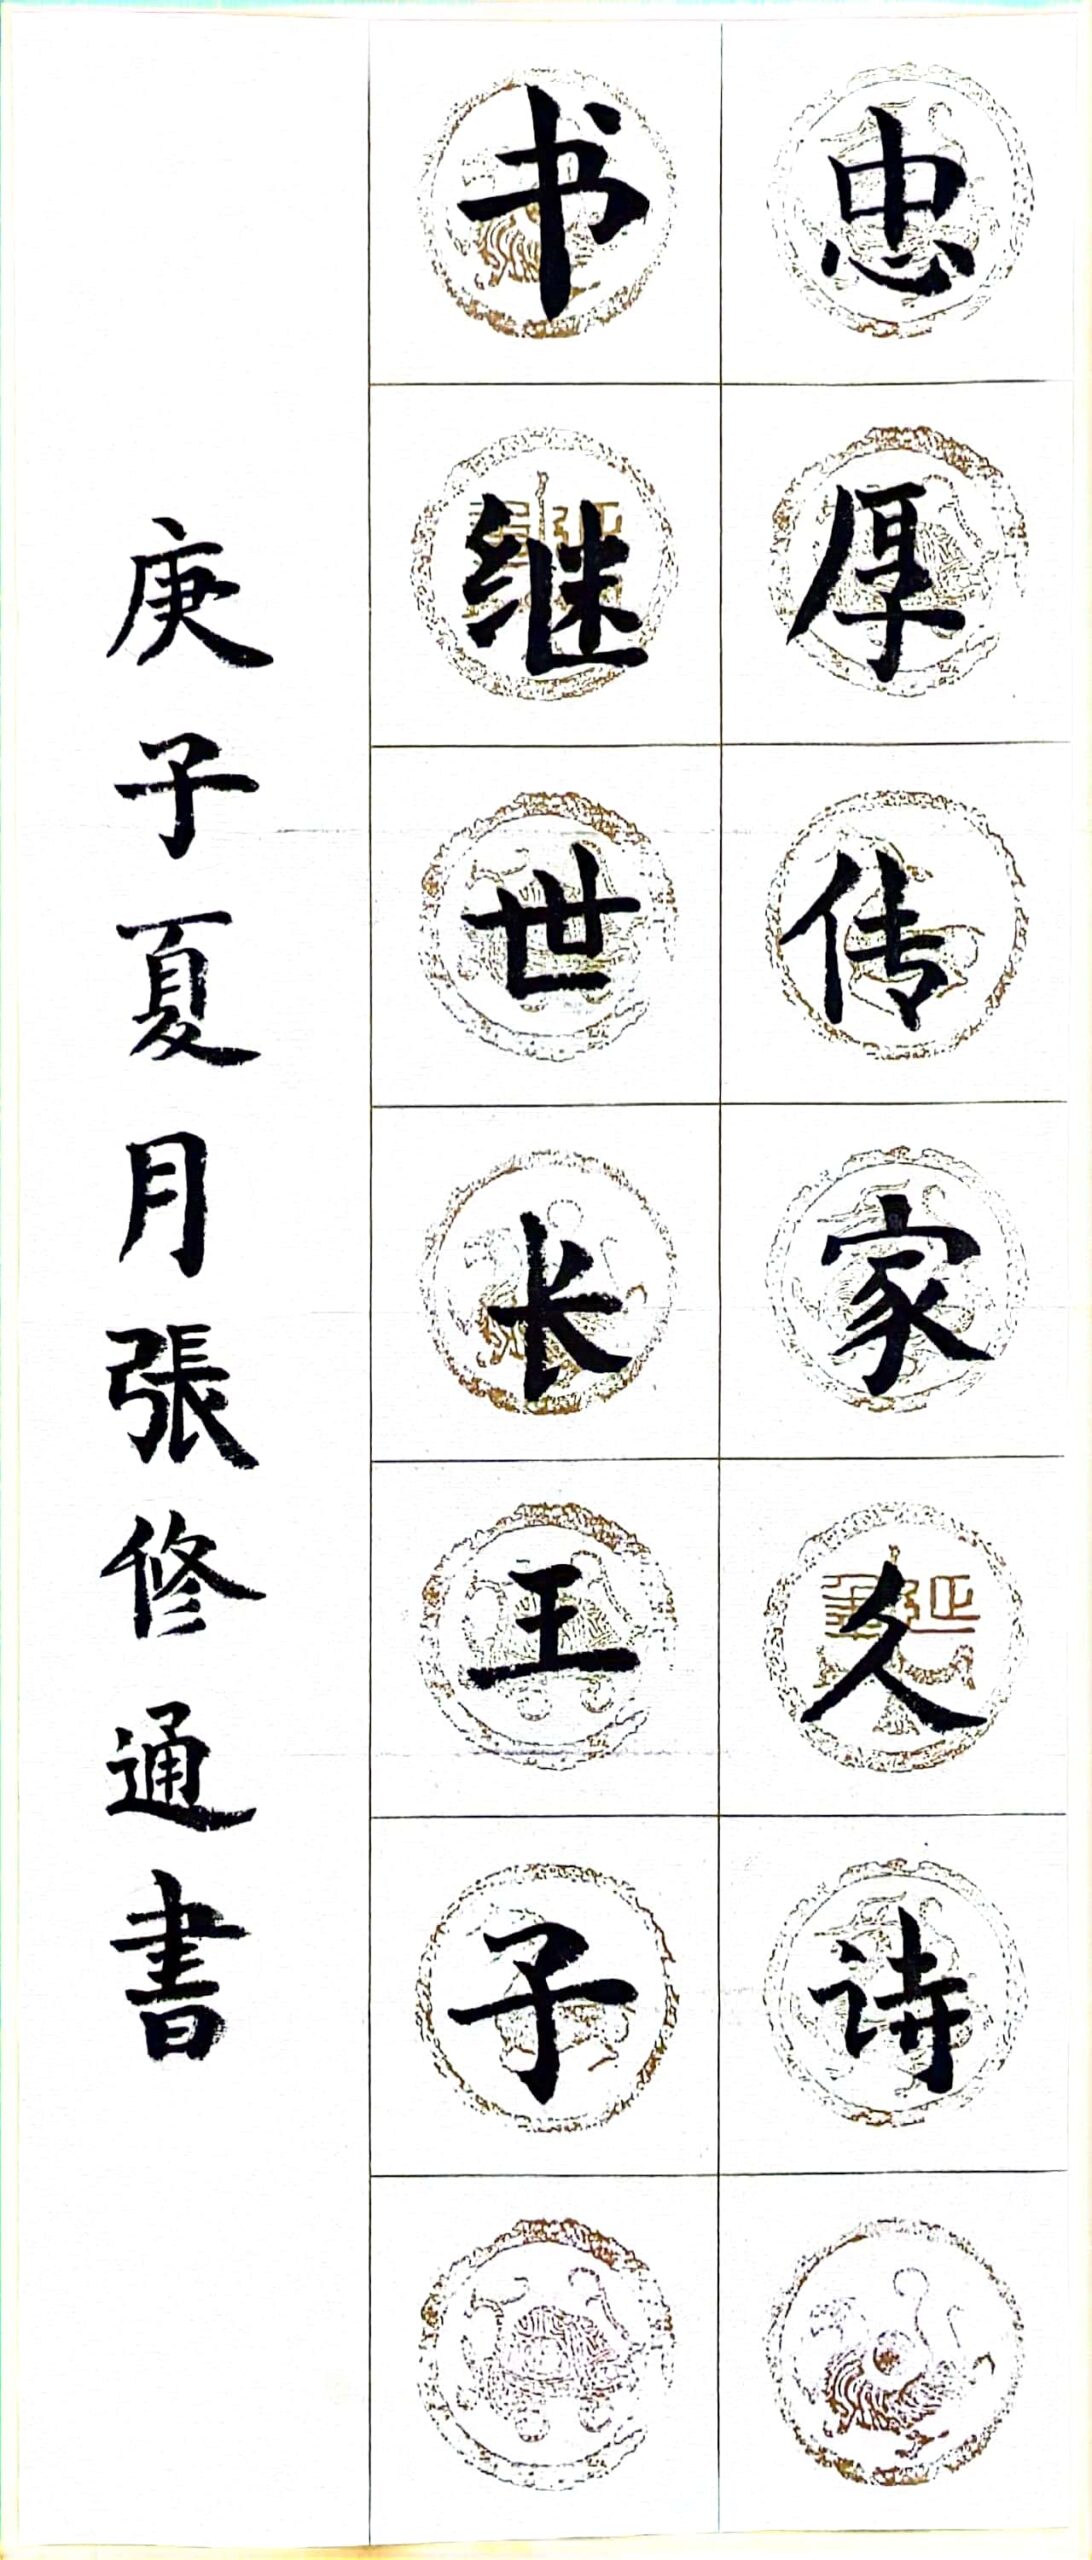 忠厚传家久诗
书继世长王子
庚子夏月張修通書